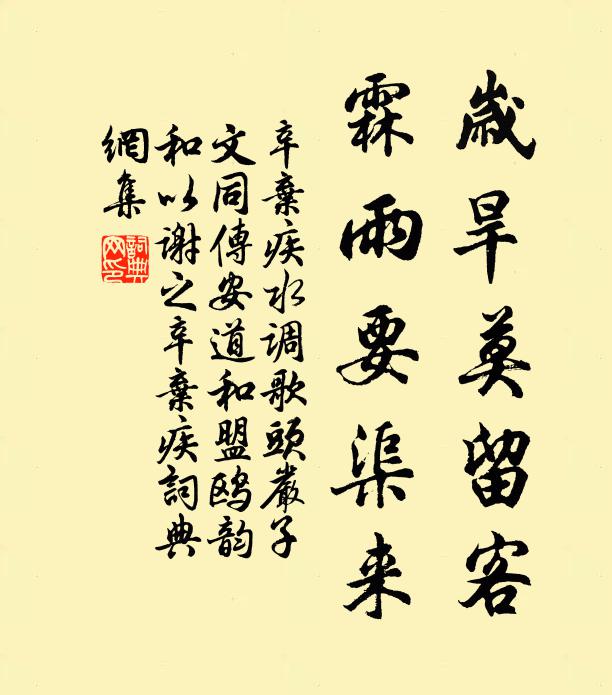 歲旱莫留客
霖雨要渠来
辛棄疾水调歌頭嚴子
文同傅安道和盟鸥韵
和以谢之辛棄疾詞典
網集
詞典
网印